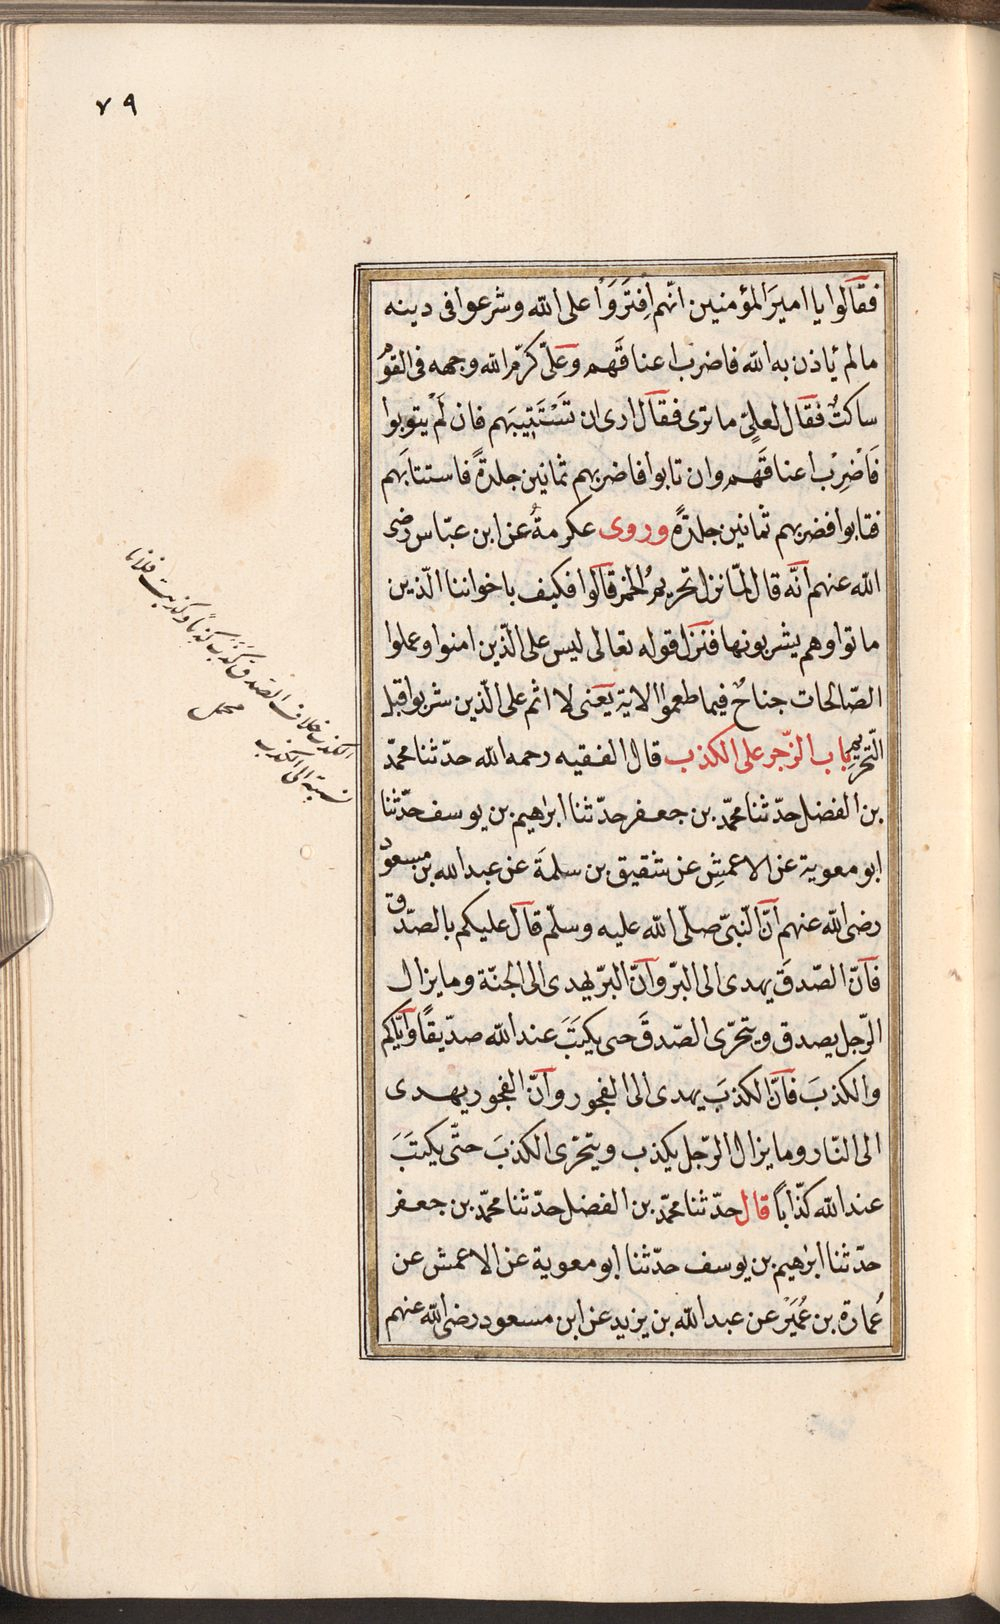 ٧٩
فقالوا يا اميرَ المؤمنين انّهم اِفتَرَوْا على الله وشرعوا فى دينه
مالم ياذن به الله فاضرب اعناقَهم وعلىّ كرّم الله وجهه فى القوم
ساكتٌ فقال لعلىٍّ ما ترى فقال ارى ان تَسْتَتِيبَهم فان لَمْ يتوبوا
فَاضْرِبْ اعناقَهم وان تابوا فاضربهم ثمانين جلدةً فاستتابَهم
فتابوا فضربهم ثمانين جلدةً وروى عكرمةُ عن ابن عبّاس رضى
الله عنهم انّه قال لمّا نزل تحريمُ الخمر قالوا فكيف باخواننا الّذين
ماتوا وهم يشربونها فنزل قوله تعالى ليس على الّذين امنوا وعملوا
الصّالحات جناحٌ فيما طعموا الاية يعنى لا اثم على الّذين شربوا قبل
التّحريم باب الزّجر على الكذب قال الفقيه رحمه الله حدّثنا محمّد
بن الفضل حدّثنا محمّد بن جعفر حدّثنا ابرٰهيم بن يوسف حدّثنا
ابو معوية عن الاعمشِ عن شقيق بن سلمةَ عن عبدالله بن مسعود
رضى الله عنهم انّ النّبىّ صلّى الله عليه وسلّم قال عليكم بالصّدق
فانّ الصّدقَ يهدى الى البرّ وانّ البرّ يهدى الى الجنّة وما يزال
الرّجل يصدق ويتحرّى الصّدقَ حتى يكتَبَ عند الله صدّيقًا وايّاكم
والكذبَ فانّ الكذبَ يهدى الى الفجور وانّ الفجور يهدى
الى النّار وما يزال الرّجل يكذب ويتحرّى الكذبَ حتّى يكتَبَ
عند الله كذّاباً قال حدّثنا محمّد بن الفضل حدّثنا محمّد بن جعفر
حدّثنا ابرٰهيم بن يوسف حدّثنا ابو معوية عن الاعمش عن
عُمارة بن عُمَيْر عن عبد الله بن يزيد عن ابن مسعود رضى الله عنهم
الكذب خلاف الصدق كَذَبَ كذبا وكذبت فلانا
نسبته الى الكذب